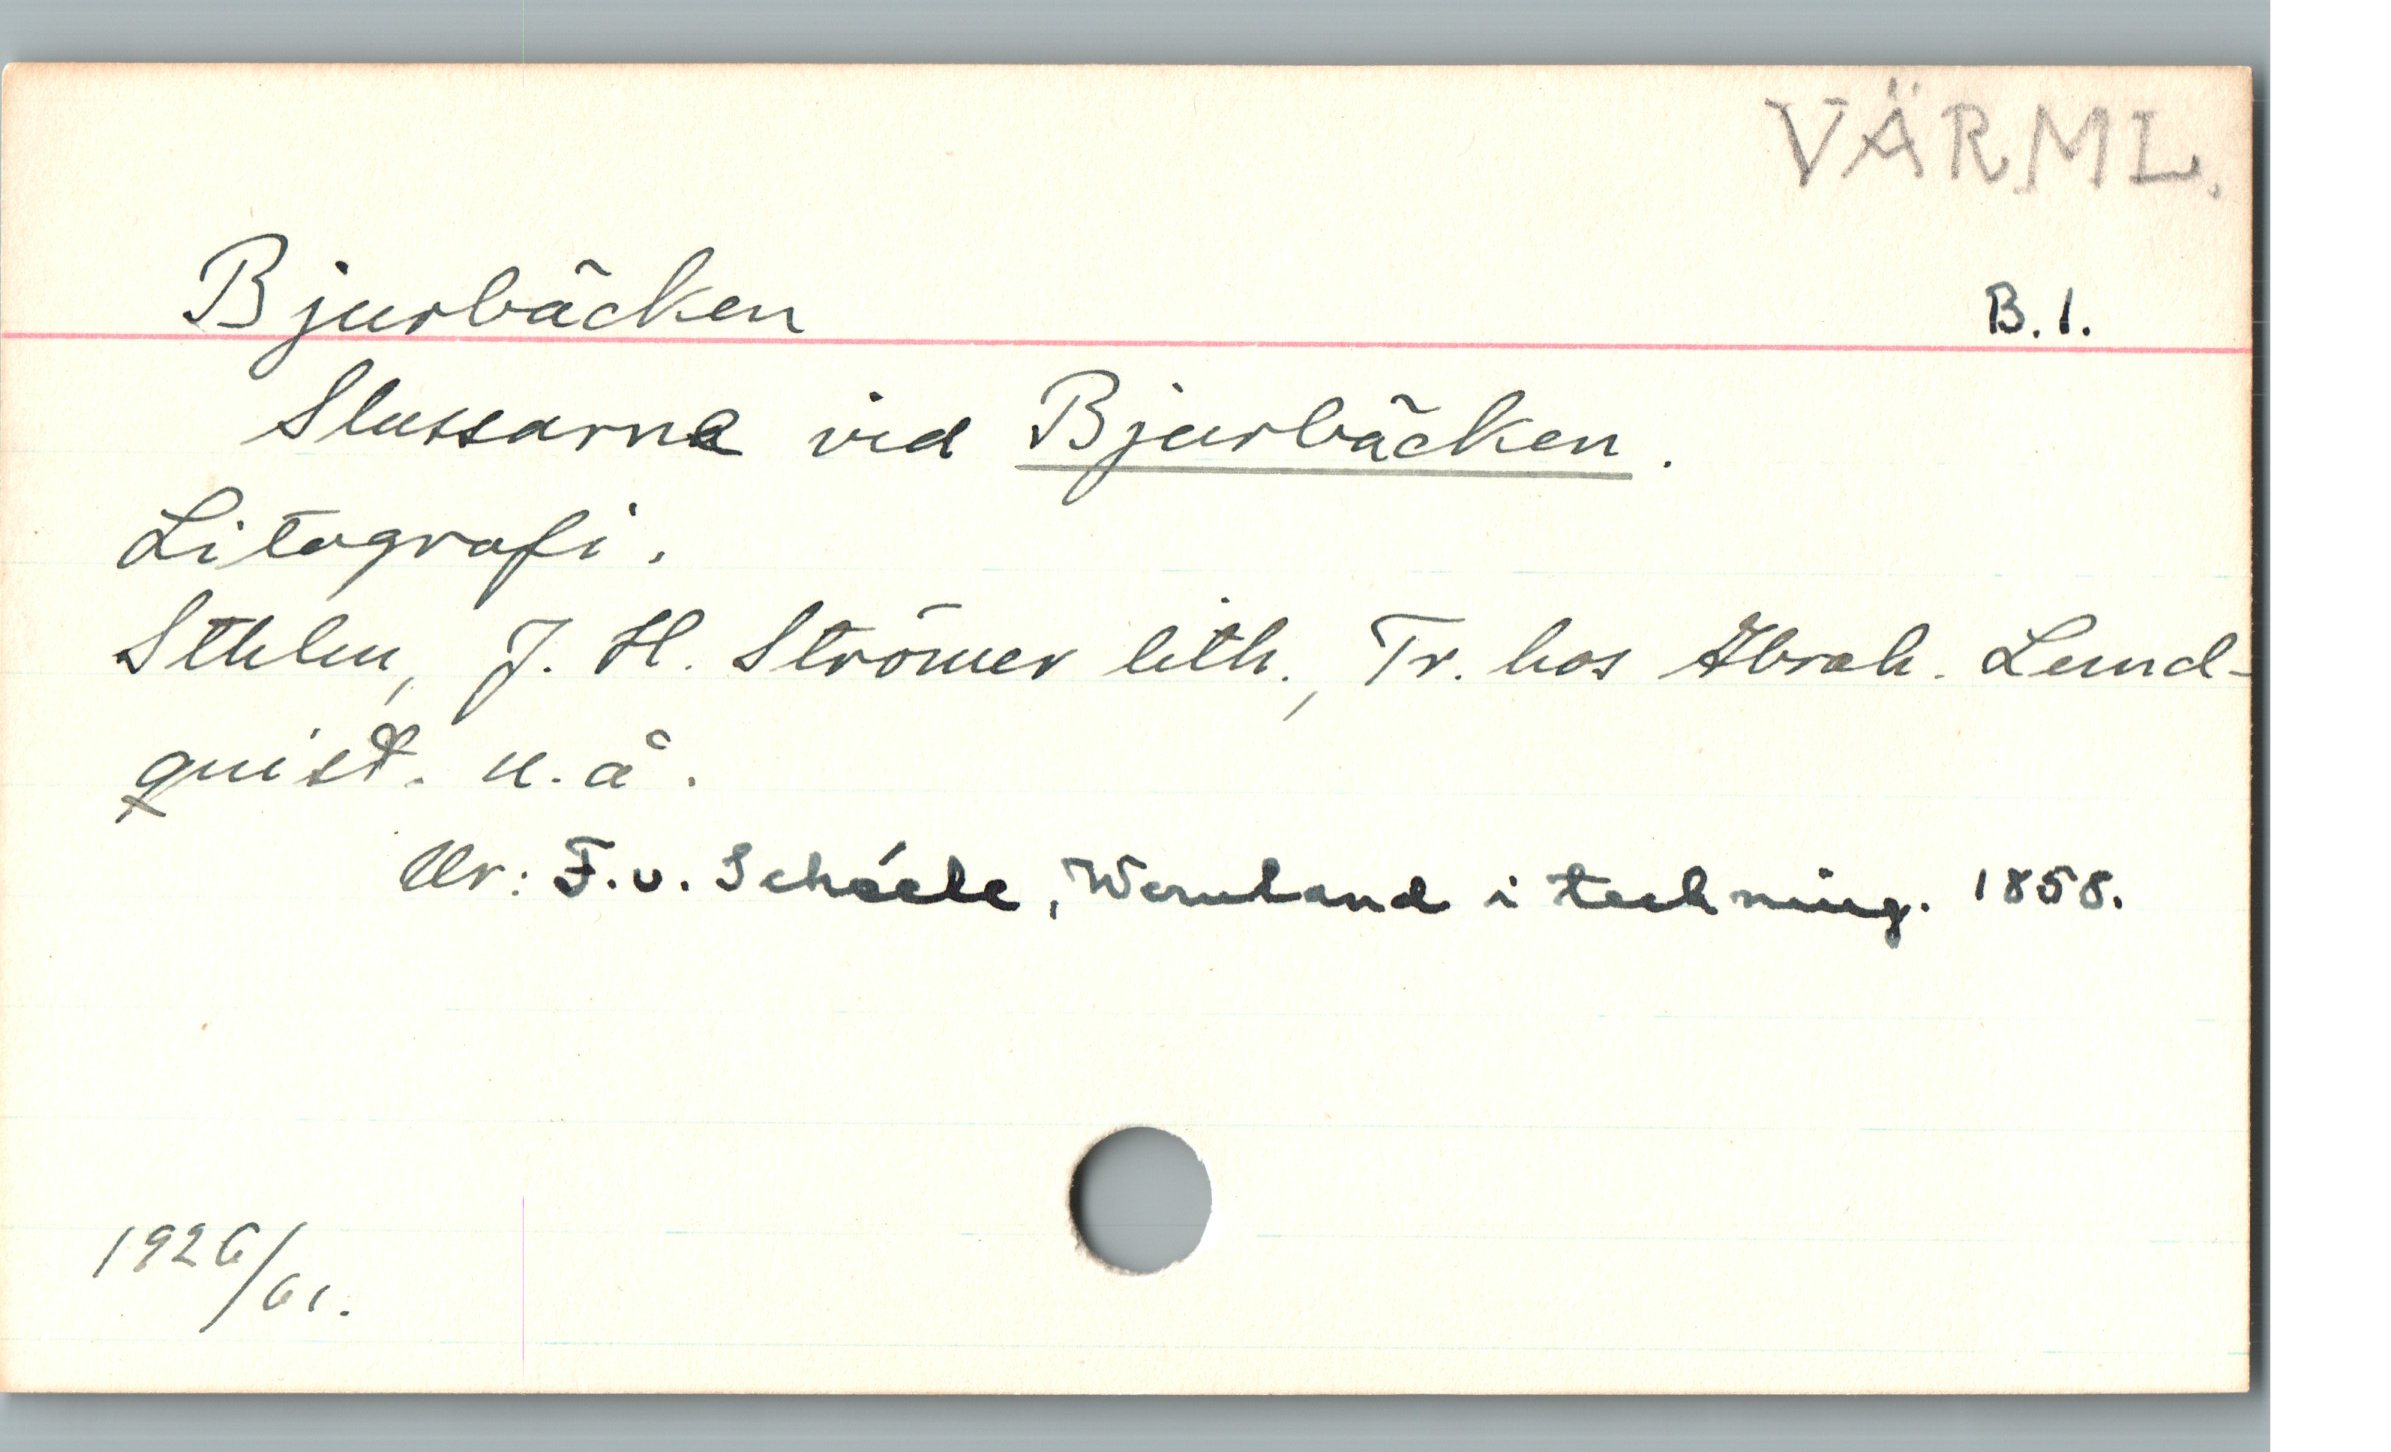 VÄRML.
Bjurbäcken B.1.
Slussarne vid Bjurbäcken.
Litografi.
Sthlm, J. H. Strömer lith., Tr. hos Abrah. Lund-
quist. u.å.
Ur: F.v. Schéele, Wermland i teckning. 1858.
1926/61.